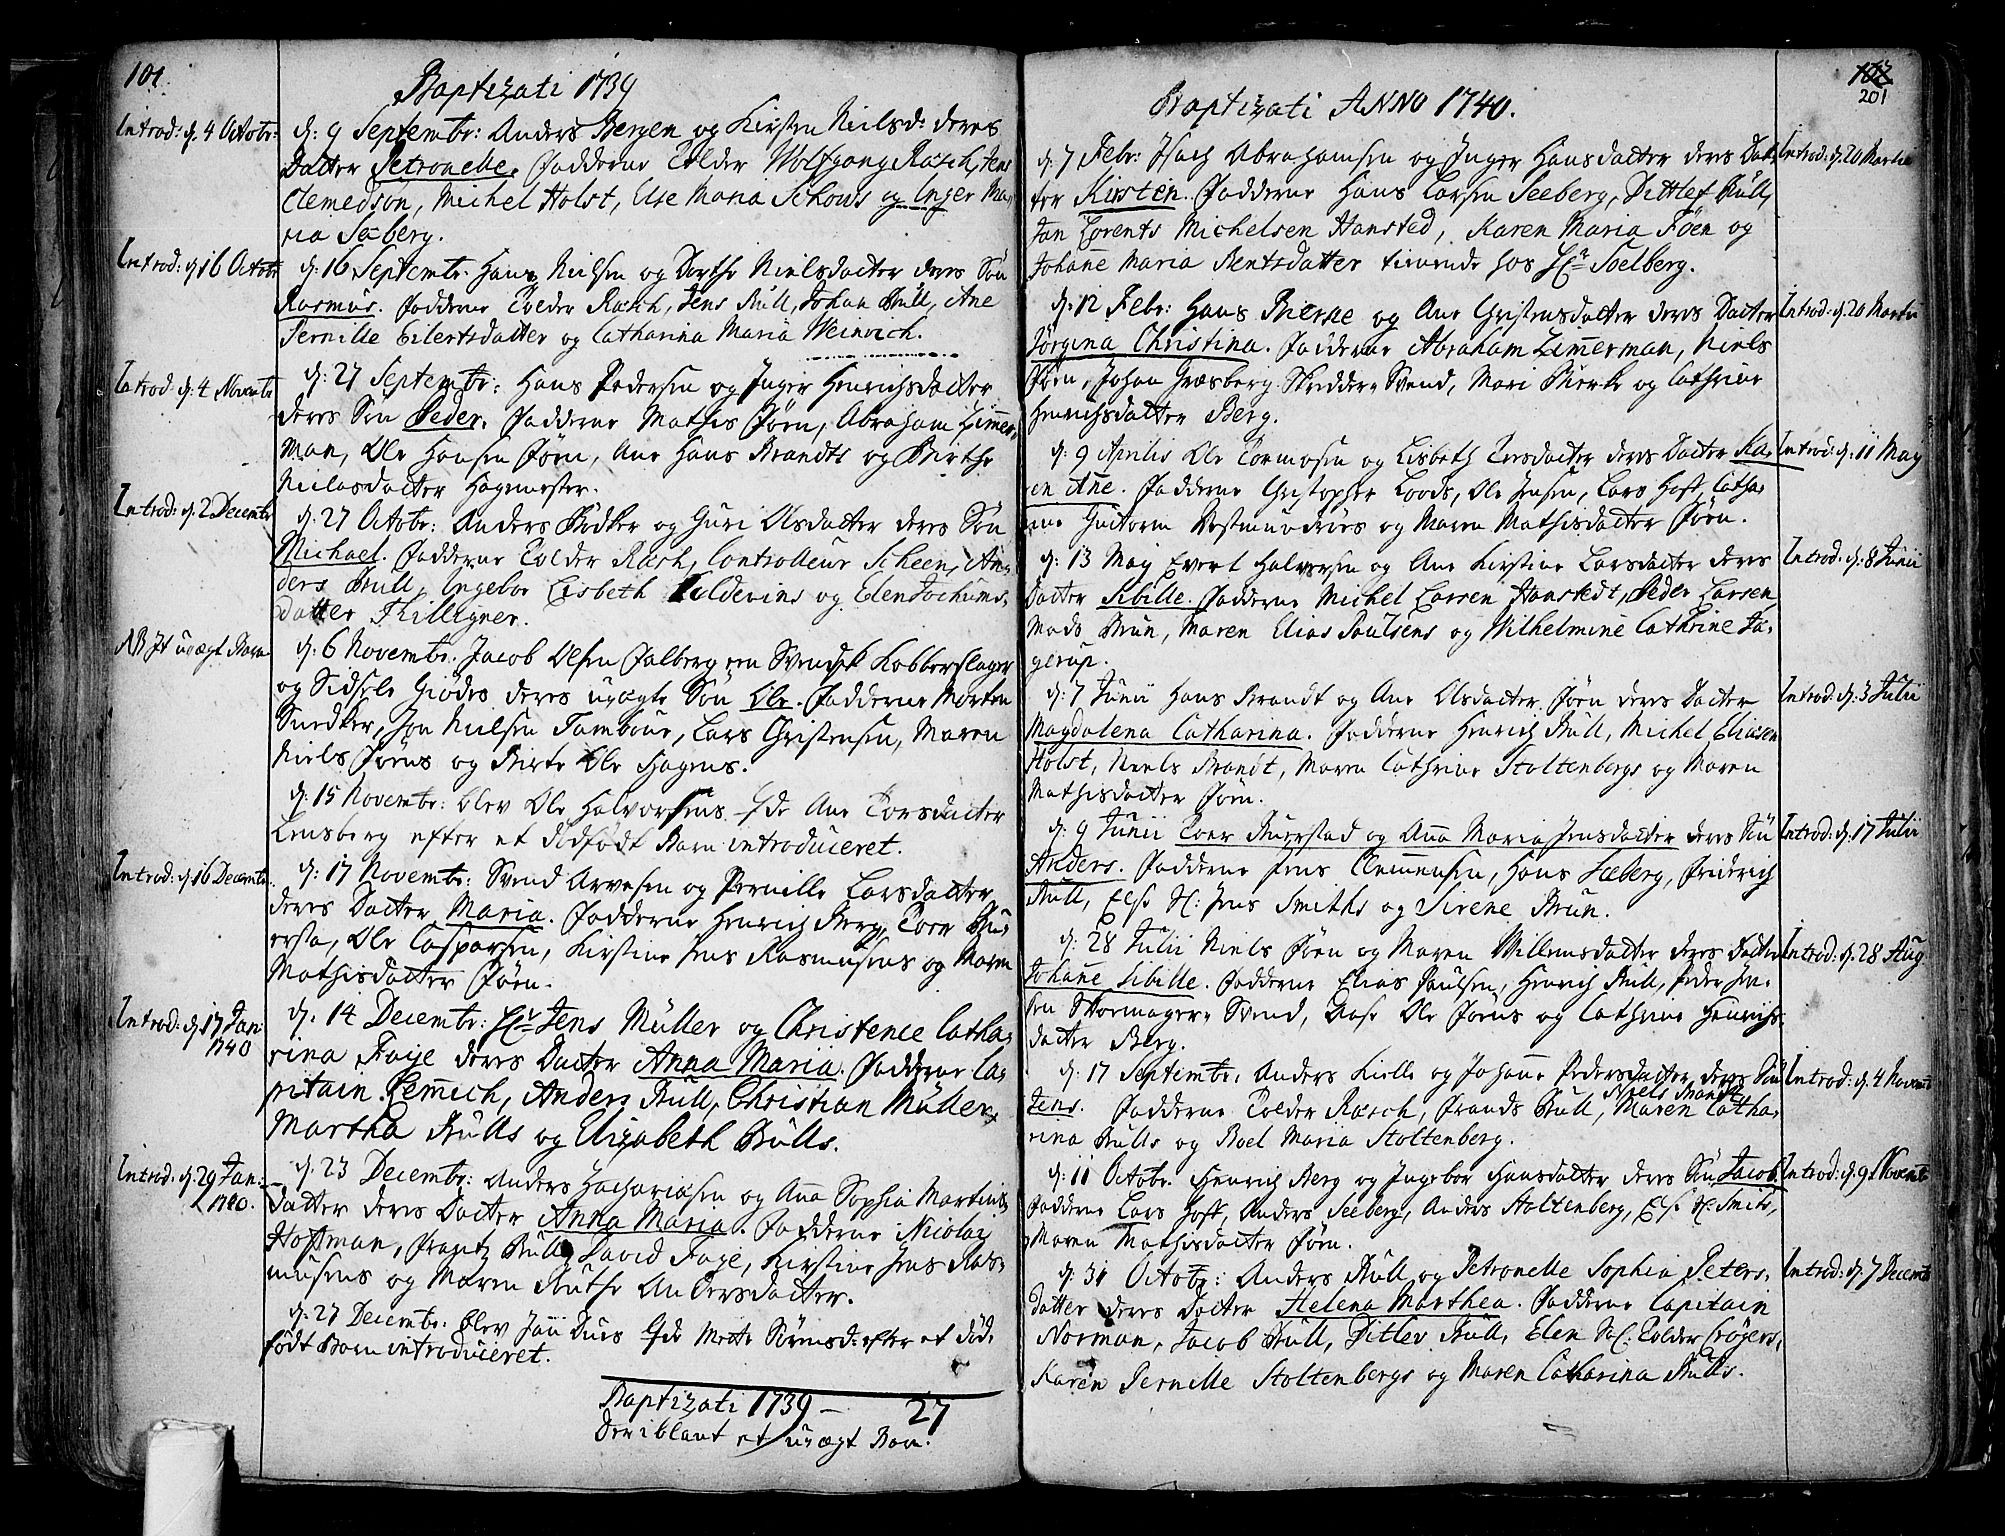 101
Baptizati 1739
Introd: d. 4 Octobr:
d. 9 Septembr: Anders Bergen og Kirsten Nielsd: deres
Datter Petronelle. Fadderne Tolder Wolfgang Rasch, Jens
Clemedson, Michel Holst, Else Maria Schous og Inger Ma,
ria Seeberg.
Introd: d. 16 Octobr:
d. 16 Septembr. Hans Nielsen og Dorthe Nielsdatter deres Søn
Rasmus. Fadderne Tolder Rasch, Jens Bull, Johan Bull, Ane
Pernille Eilertsdatter og Catharina Maria Weinrich.
Introd: d. 4 Novembr
d. 27 Septembr: Hans Pedersen og Inger Henrichsdatter
deres Søn Peder. Fadderne Mathis Jørn, Abraham Zimmer,
man, Ole Hansen Jørn, Ane Hans Brandts og Birthe
Nielasdatter Hagemester.
Introd: d. 2 Decembr
d. 27 Octobr: Anders Bødker og Guri Olsdatter deres Søn
Michael. Fadderne Tolder Rash, Controlleur Scheen, An,
ders Bull, Ingebor Lisbeth Fulderins og Elen Jochums,
Datter Thilligner.
NB Et uægt Barn
d. 6 Novembr. Jacob Olsen Falberg een Svensk Kobberslager
og Sidsele Giødes deres uægte Søn Ole. Fadderne Morten
Snedker, Jon Nielsen Tambour, Lars Christensen, Maren
Niels Jørns og Birte Ole Hagens.
d. 15 Novembr: blev Ole Halvorsens Hde Ane Torsdatter
Lensberg efter et dødfødt Barn introduceret.
Introd: d. 16 Decembr.
d. 17 Novembr: Svend Arvesen og Pernille Larsdatter
deres Datter Maria. Fadderne Henrich Berg, Toer Bu,
ersta, Ole Caspersen, Kirstine Jens Rasmusens og Maren
Mathisdatter Jørn.
Introd: d. 17 Jan:
1740
d. 14 Decembr: Hr Jens Müller og Christence Catha,
rina Foije deres Datter Anna Maria. Fadderne Ca,
pitain Lemmich, Anders Bull, Christian Müller,
Martha Bulls og Elizabeth Bulls.
Introd: d. 29 Jan:
1740.
d. 23 Decembr: Anders Zachariasen og Ana Sophia Martins
datter deres Datter Anna Maria. Fadderne Nicolay
Hoffman, Frantz Bull, David Faye, Kirstine Jens Ras,
musens og Maren Ruthe Andersdatter.
d. 27 Decembr: blev Jan Duës Hde Mette Sørensd: efter et død,
født Barn introduceret.
Baptizati 1739 — 27
Deriblant et uægt Barn.
102
201
Baptizati ANNO 1740.
d. 7 Febr: Isach Abrahamsen og Inger Hansdatter deres Dat,
Introd: d. 20 Martii
ter Kirsten. Fadderne Hans Larsen Seeberg, Dittlef Bull,
Jan Lorents Michelsen Hansted, Karen Maria Føen og
Johanne Maria Bentsdatter tienende hos Hr Soelberg.
d. 12 Febr: Hans Bierke og Ane Christensdatter deres Datter
Introd: d. 20 Martii
Jørgina Christina. Fadderne Abraham Zimmerman, Niels
Jørn, Johan Græsberg Skredder Svend, Mari Bierke og Cathrine
Henrichsdatter Berg.
d. 9 Aprilis Ole Tormosen og Lisbeth Iversdatter deres Datter Ka,
Introd: d. 11 May
ren Ane. Fadderne Christopher Loods, Ole Jensen, Lars Hoft, Catha,
rine Guttorm Vestmundrøes og Maren Mathisdatter Jørn.
d. 13 May Evert Halvorsen og Ane Kirstine Larsdatter deres
Introd: d. 8 Junii
Datter Sibille. Fadderne Michel Larsen Hanstedt, Peder Larsen
Mads Brun, Maren Elias Poulsens og Wilhelmine Cathrine Ja,
gerup.
d. 7 Junii Hans Brandt og Ane Olsdatter Jørn deres Datter
Introd: d. 3 Julii
Magdalena Catharina. Fadderne Henrich Bull, Michel Eliasen
Holst, Niels Brandt, Maren Cathrine Stoltenbergs og Maren
Mathisdatter Jørn.
d. 9 Junii Toer Buerstad og Ana Maria Jensdatter deres Søn
Introd: d. 17 Julii
Anders. Fadderne Jens Clemmensen, Hans Seeberg, Friderich
Bull, Else Sl: Jens Smiths og Sirene Brun.
d. 28 Julii Niels Jørn og Maren Willemsdatter deres Datter
Introd: d. 28 Aug.
Johanne Sibille. Fadderne Elias Paulsen, Henrich Bull, Peder Jen,
sen Skomager Svend, Aase Ole Jørns og Cathrine Henrichs,
datter Berg.
d. 17 Septembr: Anders Kielle og Johanne Pedersdatter deres Søn
Introd: d. 4 Novemb
Niels Brandt
Jens. Fadderne Tolder Rasch, Frands Bull, Maren Catha,
rina Bulls og Boel Maria Stoltenberg.
d. 11 Octobr. Henrich Berg og Ingebor Hansdatter deres Søn Jacob
Introd: d. 9 Novemb
Fadderne Lars Hoft, Anders Seeberg, Anders Stoltenberg, Else Sl: Smits,
Maren Mathisdatter Jørn.
d. 31 Octobr: Anders Bull og Petronelle Sophia Peters,
Introd: d. 7 Decemb
datter deres Datter Helena Marthea. Fadderne Capitain
Norman, Jacob Bull, Ditlev Bull, Elen Sl: Tolder Crøgers,
Karen Pernille Stoltenbergs og Maren Catharina Bulls.